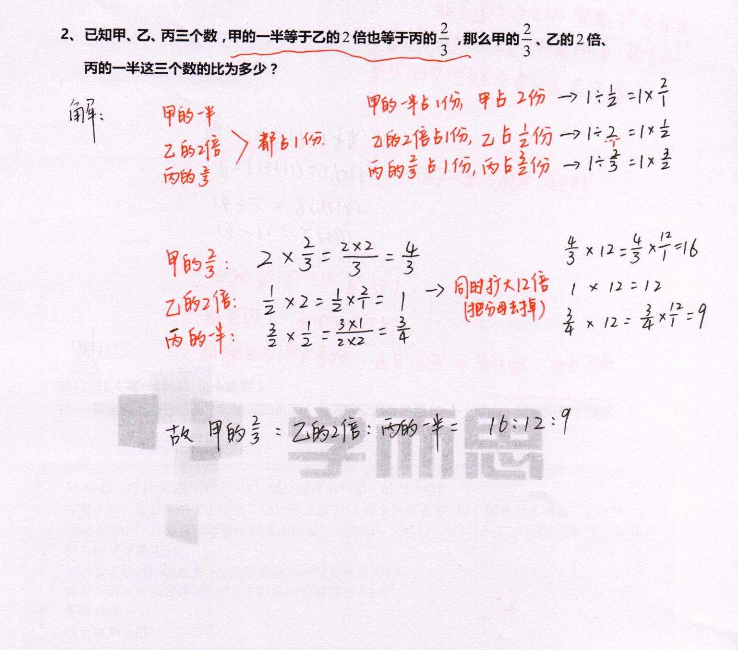 2、已知甲、乙、丙三个数,甲的一半等于乙的2倍也等于丙的2/3,那么甲的2/3、乙的2倍、
丙的一半这三个数的比为多少?
解:
甲的一半
乙的2倍
丙的2/3
> 都占1份.
甲的一半占1份, 甲占2份 → 1÷1/2 =1×2/1
乙的2倍占1份, 乙占1/2份 → 1÷2/1 =1×1/2
丙的2/3占1份, 丙占3/2份 → 1÷2/3 =1×3/2
甲的2/3: 2×2/3=2×2/3=4/3
乙的2倍: 1/2×2=1/2×2/1=1
丙的一半: 3/2×1/2=3×1/2×2=3/4
→ 同时扩大12倍
(把分母去掉)
4/3×12=4/3×12/1=16
1×12=12
3/4×12=3/4×12/1=9
故 甲的2/3:乙的2倍:丙的一半= 16:12:9
思而学